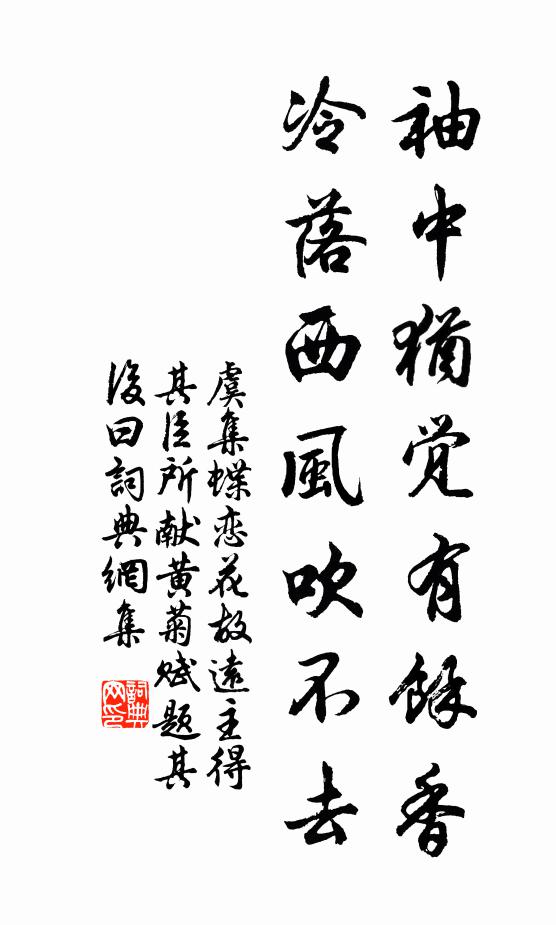 袖中猶覺有餘香
冷落西風吹不去
虞集蝶恋花故遠主得
其臣所献黄菊赋题其
後曰詞典網集
詞典
网印